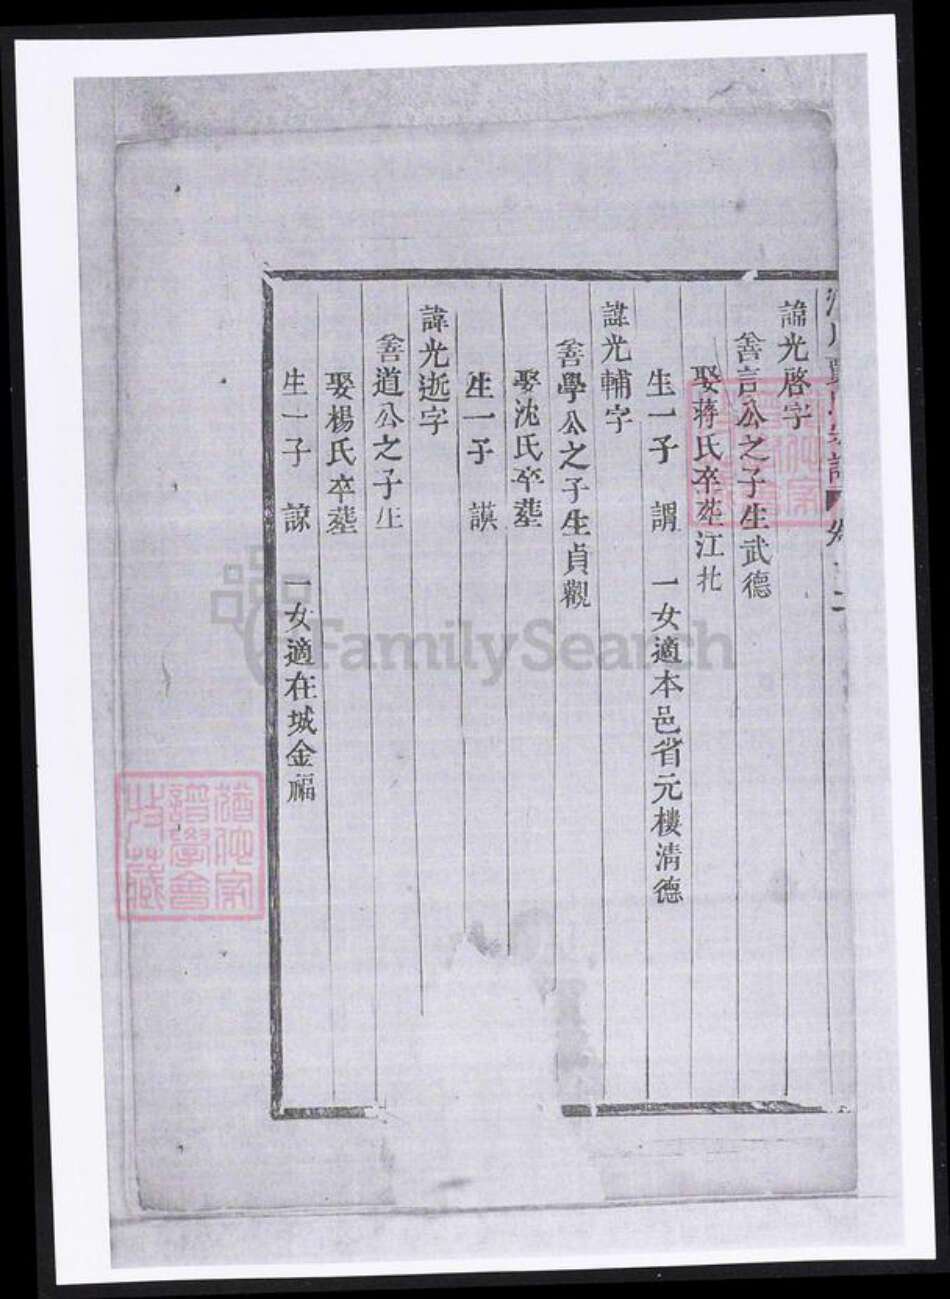 諱光啓字
善言公之子生武德
娶蔣氏卒塟江北
生一子 謂 一女適本邑省元樓清德
諱光輔字
善學公之子生貞觀
娶沈氏卒塟
生一子 謨
諱光逝字
善道公之子生
娶楊氏卒塟
生一子 諒 一女適在城金福
FamilySearch
譜學會